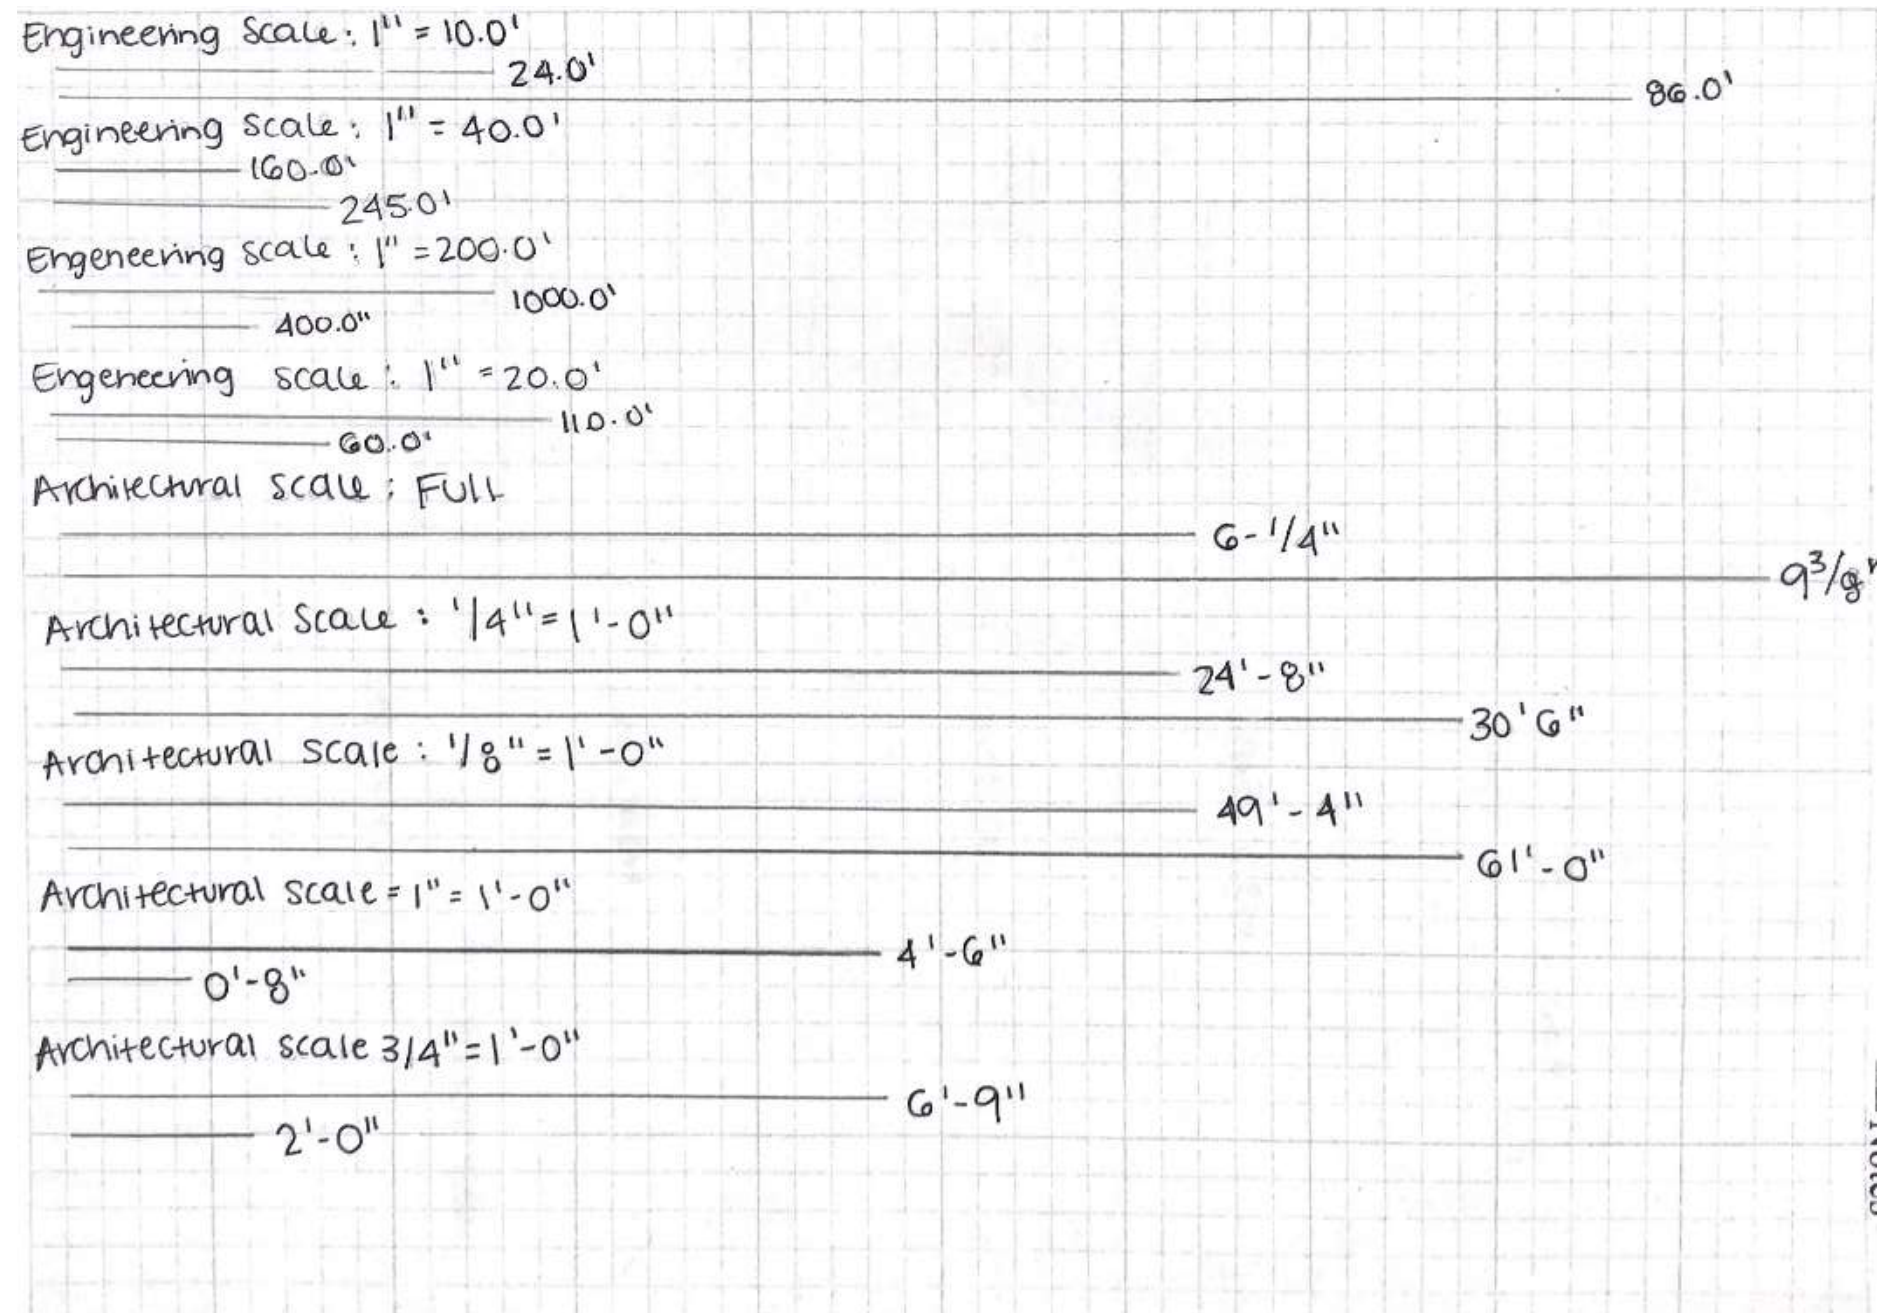 Engineering Scale: 1" = 10.0'
24.0'
86.0'
Engineering scale: 1" = 40.0'
160.0'
245.0'
Engeneering scale: 1" = 200.0'
1000.0'
400.0"
Engeneering scale: 1" = 20.0'
110.0'
60.0'
Architectural scale: FULL
6-1/4"
9 3/8"
Architectural scale: 1/4" = 1'-0"
24'-8"
30'6"
Architectural scale: 1/8" = 1'-0"
49'-4"
61'-0"
Architectural scale = 1" = 1'-0"
4'-6"
0'-8"
Architectural scale 3/4" = 1'-0"
6'-9"
2'-0"
Notes